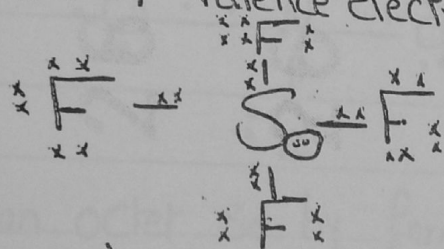 valence elect
F
F S F
F